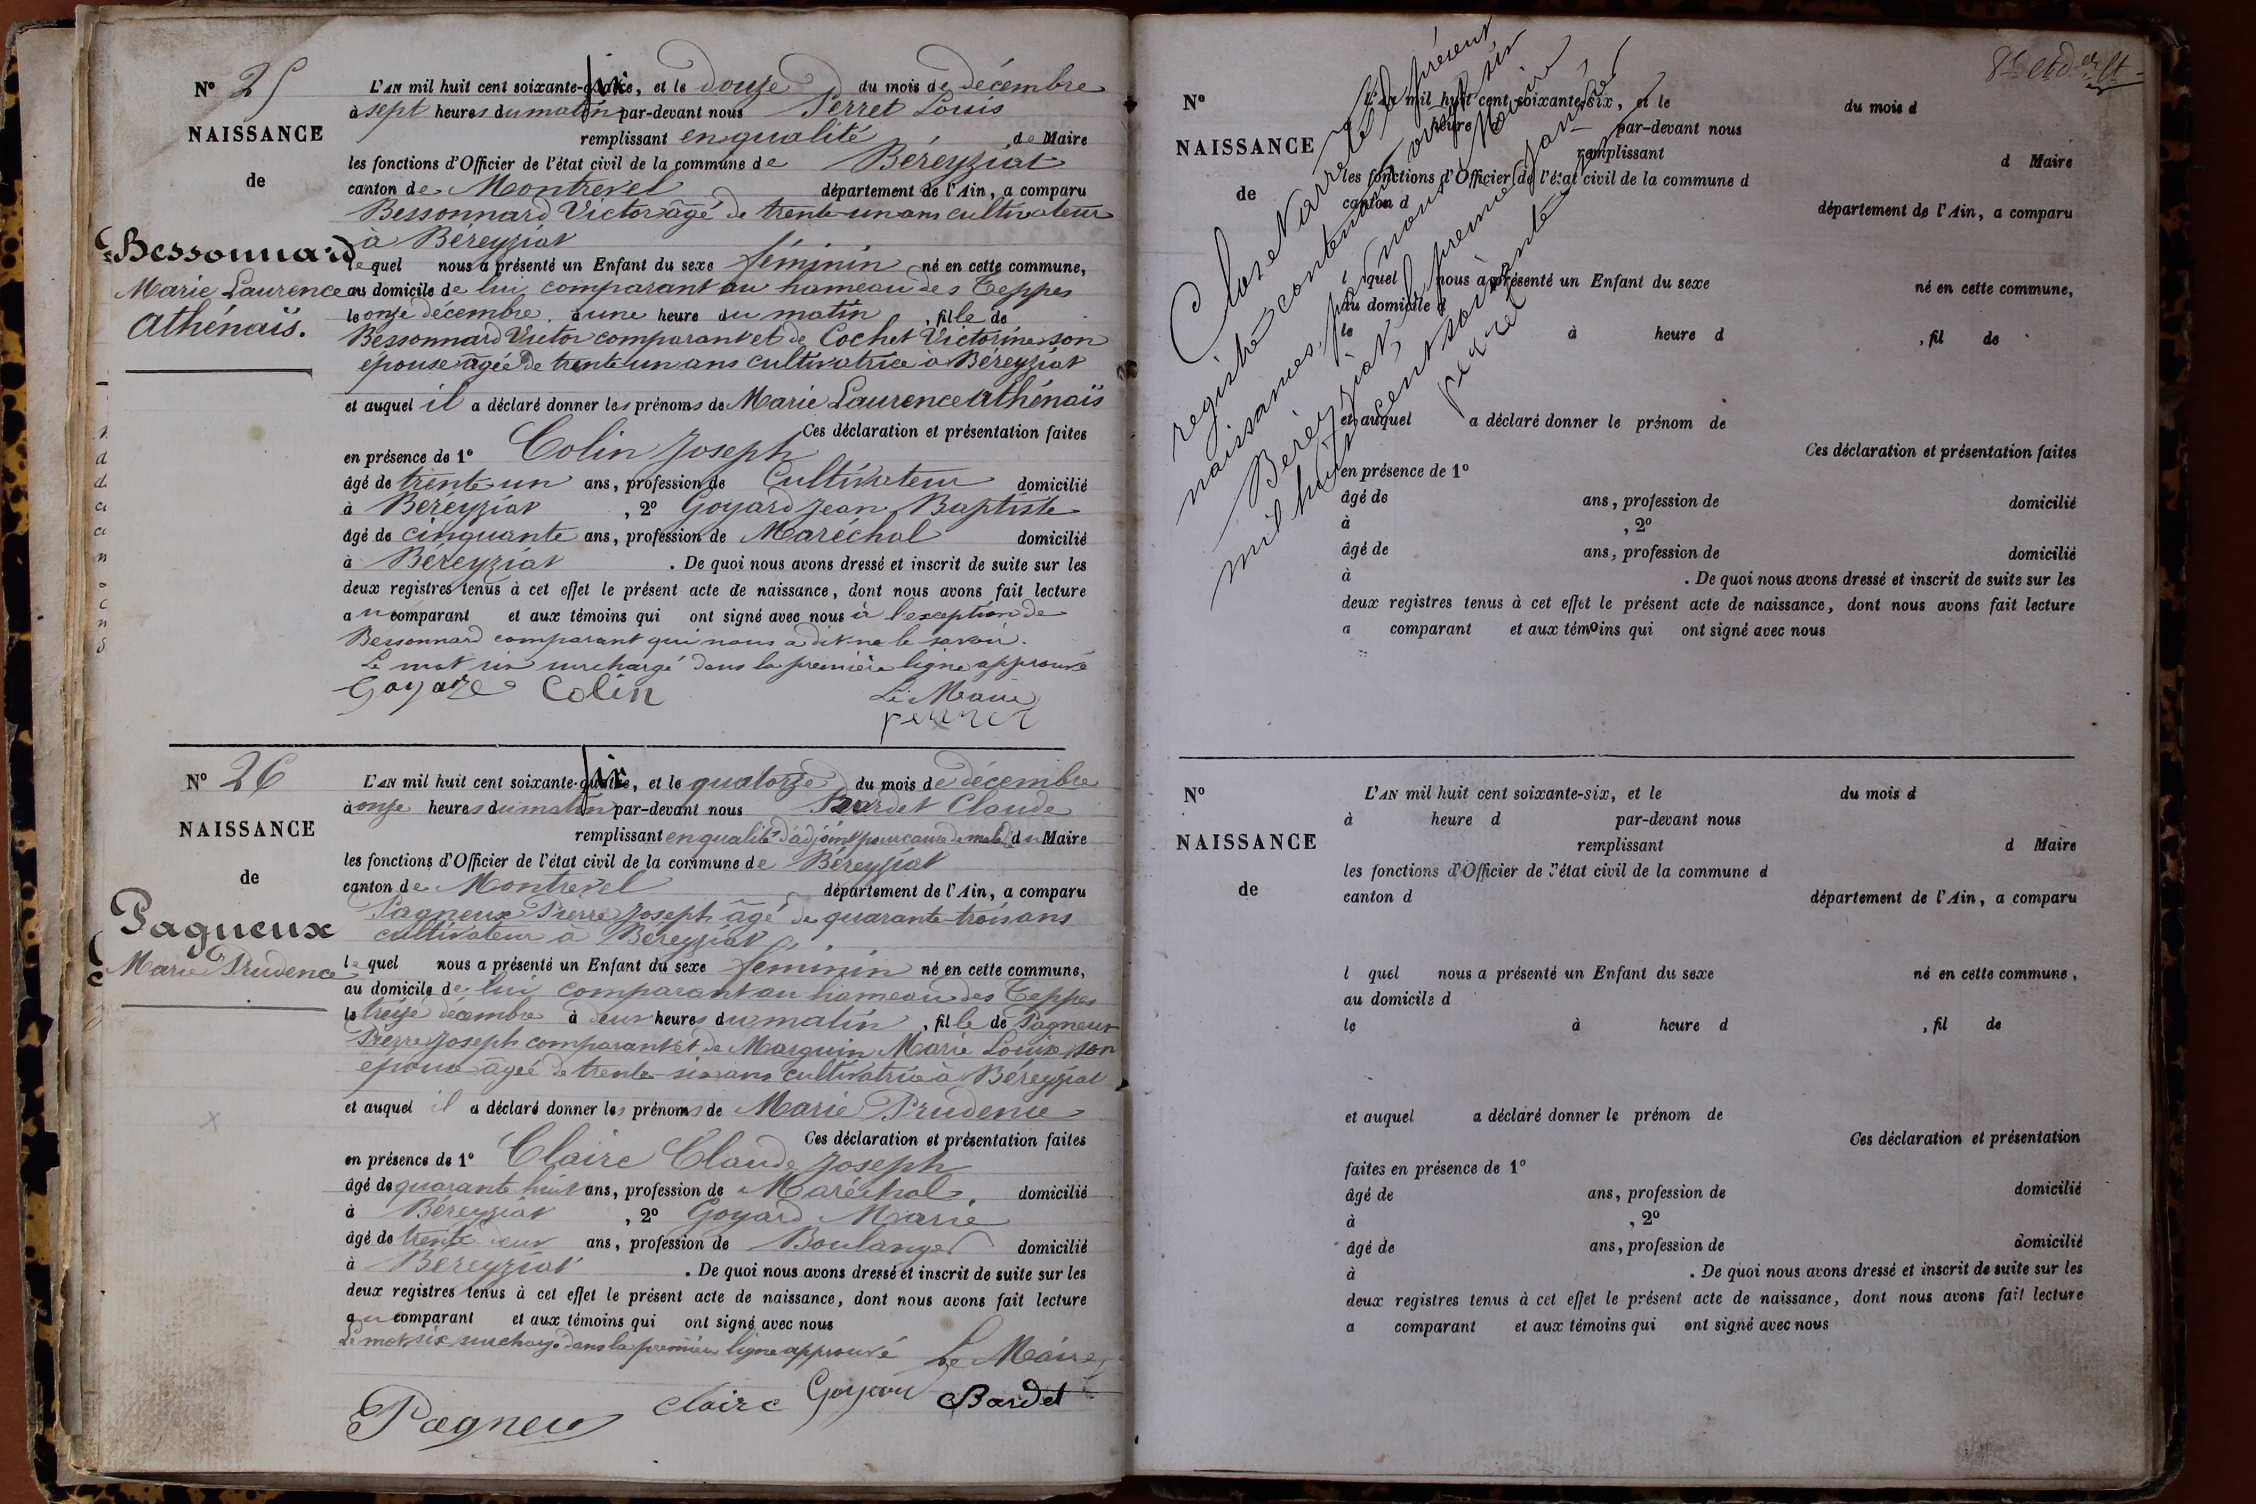 N° 25
NAISSANCE
de
Bessonnard
Marie Laurence
Athénaïs.
L'AN mil huit cent soixante-six, et le douze du mois de décembre
à sept heures du matin par-devant nous Perret Louis
remplissant en qualité de Maire
les fonctions d'Officier de l'état civil de la commune de Béreyziat
canton de Montrevel département de l'Ain, a comparu
Bessonnard Victor âgé de trente-un ans cultivateur
à Béreyziat
lequel nous a présenté un Enfant du sexe féminin né en cette commune,
au domicile de lui comparant au hameau des Teppes
le onze décembre à une heure du matin, fille de
Bessonnard Victor comparant et de Cochet Victorine son
épouse âgée de trente un ans cultivatrice à Béreyziat
et auquel il a déclaré donner les prénoms de Marie Laurence Athénaïs
Ces déclaration et présentation faites
en présence de 1° Colin Joseph
âgé de trente-un ans, profession de Cultivateur domicilié
à Béreyziat, 2° Goyard Jean Baptiste
âgé de cinquante ans, profession de Maréchal domicilié
à Béreyziat. De quoi nous avons dressé et inscrit de suite sur les
deux registres tenus à cet effet le présent acte de naissance, dont nous avons fait lecture
au comparant et aux témoins qui ont signé avec nous à l'exception de
Bessonnard comparant qui nous a dit ne le savoir.
Le mot six surchargé dans la première ligne approuvé
Goyard Colin Le Maire
perret
N° 26
NAISSANCE
de
Pagneux
Marie Prudence
L'AN mil huit cent soixante-six, et le quatorze du mois de décembre
à onze heures du matin par-devant nous Bardet Claude
remplissant en qualité d'adjoint pour cause de maladie du Maire
les fonctions d'Officier de l'état civil de la commune de Béreyziat
canton de Montrevel département de l'Ain, a comparu
Pagneux Pierre Joseph âgé de quarante-trois ans
cultivateur à Béreyziat
lequel nous a présenté un Enfant du sexe féminin né en cette commune,
au domicile de lui comparant au hameau des Teppes
le treize décembre à deux heures du matin, fille de Pagneux
Pierre Joseph comparant et de Marguin Marie Louise son
épouse âgée de trente-six ans cultivatrice à Béreyziat
et auquel il a déclaré donner les prénoms de Marie Prudence
Ces déclaration et présentation faites
en présence de 1° Claire Claude Joseph
âgé de quarante huit ans, profession de Maréchal, domicilié
à Béreyziat, 2° Goyard Marie
âgé de trente deux ans, profession de Boulanger domicilié
à Béreyziat. De quoi nous avons dressé et inscrit de suite sur les
deux registres tenus à cet effet le présent acte de naissance, dont nous avons fait lecture
au comparant et aux témoins qui ont signé avec nous
Le mot six surchargé dans la première ligne approuvé Le Maire
Pagneux Claire Goyard Bardet
Clos et arrêté le présent
registre contenant vingt six
naissances, par nous Maire
Béreyziat, le premier janvier
mil huit cent soixante sept
perret
N°
NAISSANCE
de
L'AN mil huit cent soixante-six, et le du mois d
à heure d par-devant nous
remplissant d Maire
les fonctions d'Officier de l'état civil de la commune d
canton d
département de l'Ain, a comparu
l quel nous a présenté un Enfant du sexe né en cette commune,
au domicile d
le à heure d , fil de
et auquel a déclaré donner le prénom de
Ces déclaration et présentation faites
en présence de 1°
âgé de ans, profession de domicilié
à , 2°
âgé de ans, profession de domicilié
à . De quoi nous avons dressé et inscrit de suite sur les
deux registres tenus à cet effet le présent acte de naissance, dont nous avons fait lecture
a comparant et aux témoins qui ont signé avec nous
N°
NAISSANCE
de
L'AN mil huit cent soixante-six, et le du mois d
à heure d par-devant nous
remplissant d Maire
les fonctions d'Officier de l'état civil de la commune d
canton d département de l'Ain, a comparu
l quel nous a présenté un Enfant du sexe né en cette commune,
au domicile d
le à heure d , fil de
et auquel a déclaré donner le prénom de
Ces déclaration et présentation
faites en présence de 1°
âgé de ans, profession de domicilié
à , 2°
âgé de ans, profession de domicilié
à . De quoi nous avons dressé et inscrit de suite sur les
deux registres tenus à cet effet le présent acte de naissance, dont nous avons fait lecture
a comparant et aux témoins qui ont signé avec nous